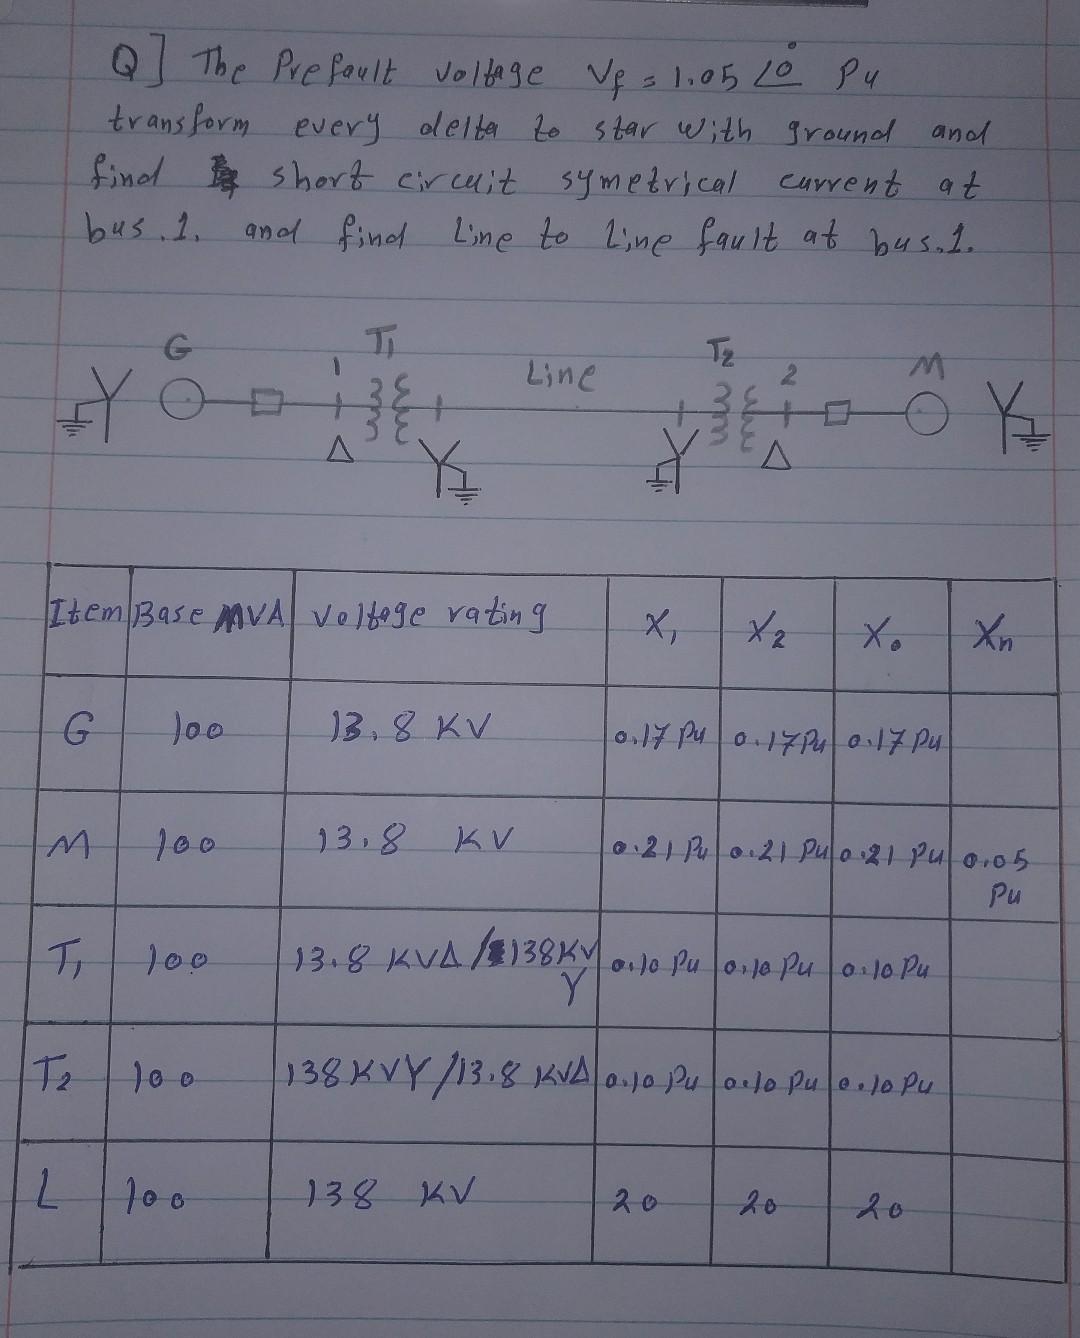 Q] The Prefault voltage Vf = 1.05 ∠0° Pu
transform every delta to star with ground and
find short circuit symetrical current at
bus.1. and find Line to Line fault at bus.1.
G 1 T1 Line T2 2 M
Δ Δ
Item Base MVA voltage rating X1 X2 X0 Xn
G 100 13.8 KV 0.17 Pu 0.17 Pu 0.17 Pu
M 100 13.8 KV 0.21 Pu 0.21 Pu 0.21 Pu 0.05 Pu
T1 100 13.8 KVΔ/138KV Y 0.10 Pu 0.10 Pu 0.10 Pu
T2 100 138KVY/13.8 KVΔ 0.10 Pu 0.10 Pu 0.10 Pu
L 100 138 KV 20 20 20